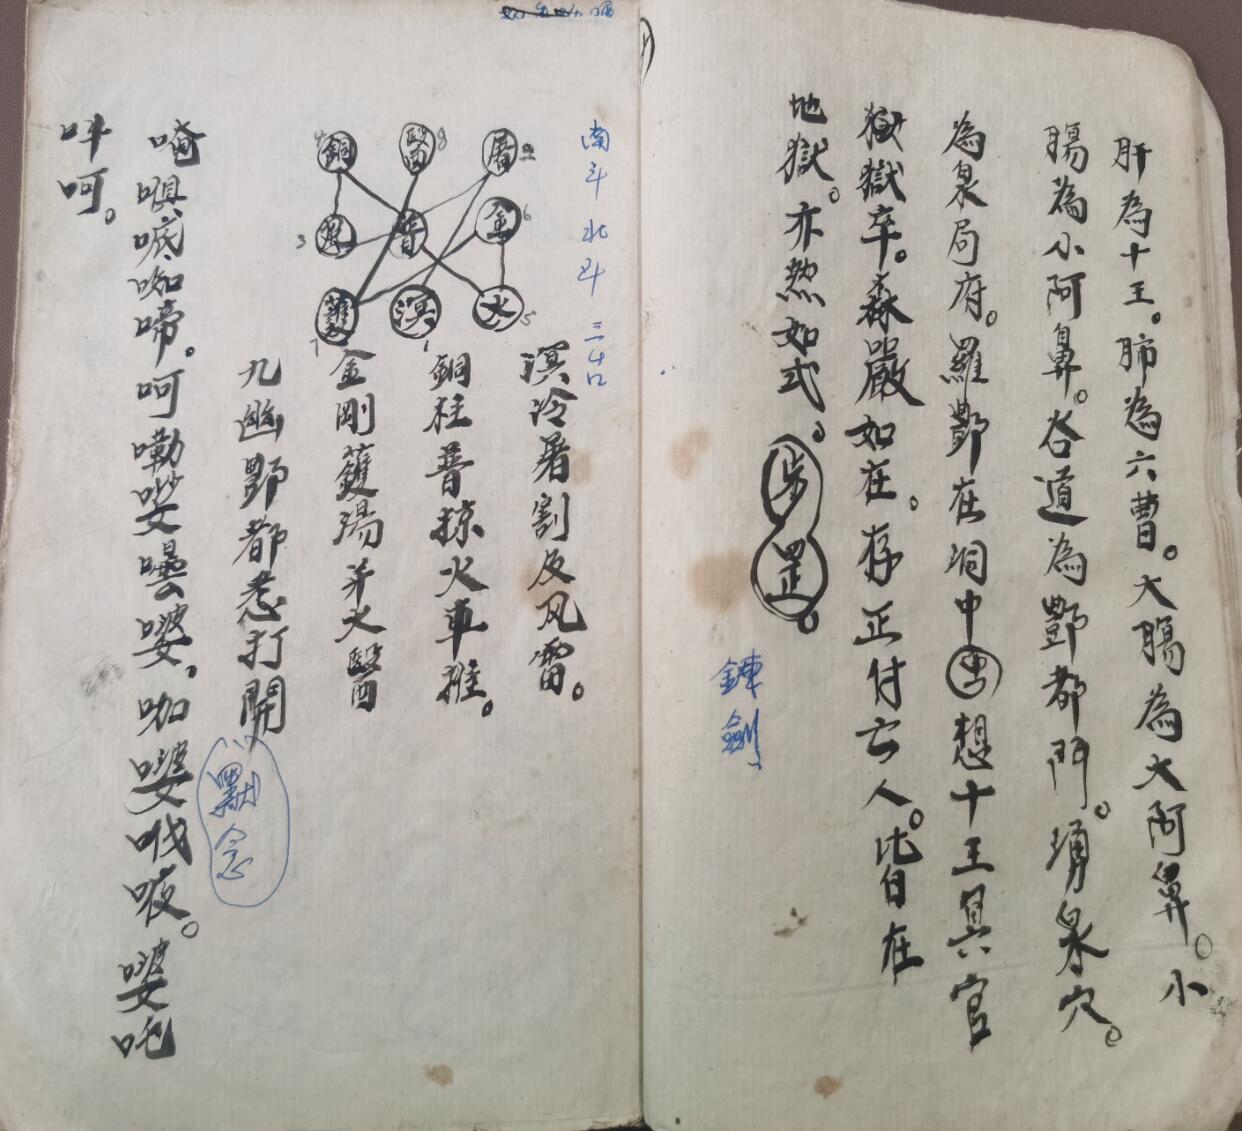 肝為十王。肺為六曹。大腸為大阿鼻。小
腸為小阿鼻。谷道為酆都門。湧泉穴。
為泉局府。羅酆在洞中想十王具六官
獄獄卒。森嚴如在。存正付亡人。比皆在
地獄。亦然如式。步罡。
鍊劍
南斗北斗三 口
屠2 醫8 銅4
金6 普 3
火5 溟1 鑊7
溟冷屠割及風雷。
銅柱普掠火車推。
金剛鑊湯并火醫
九幽酆都悉打開
默念
唵㗢㖇㗎啼。呵嘞㘇曇婆，咖婆哦唆。婆吒
吽呵。